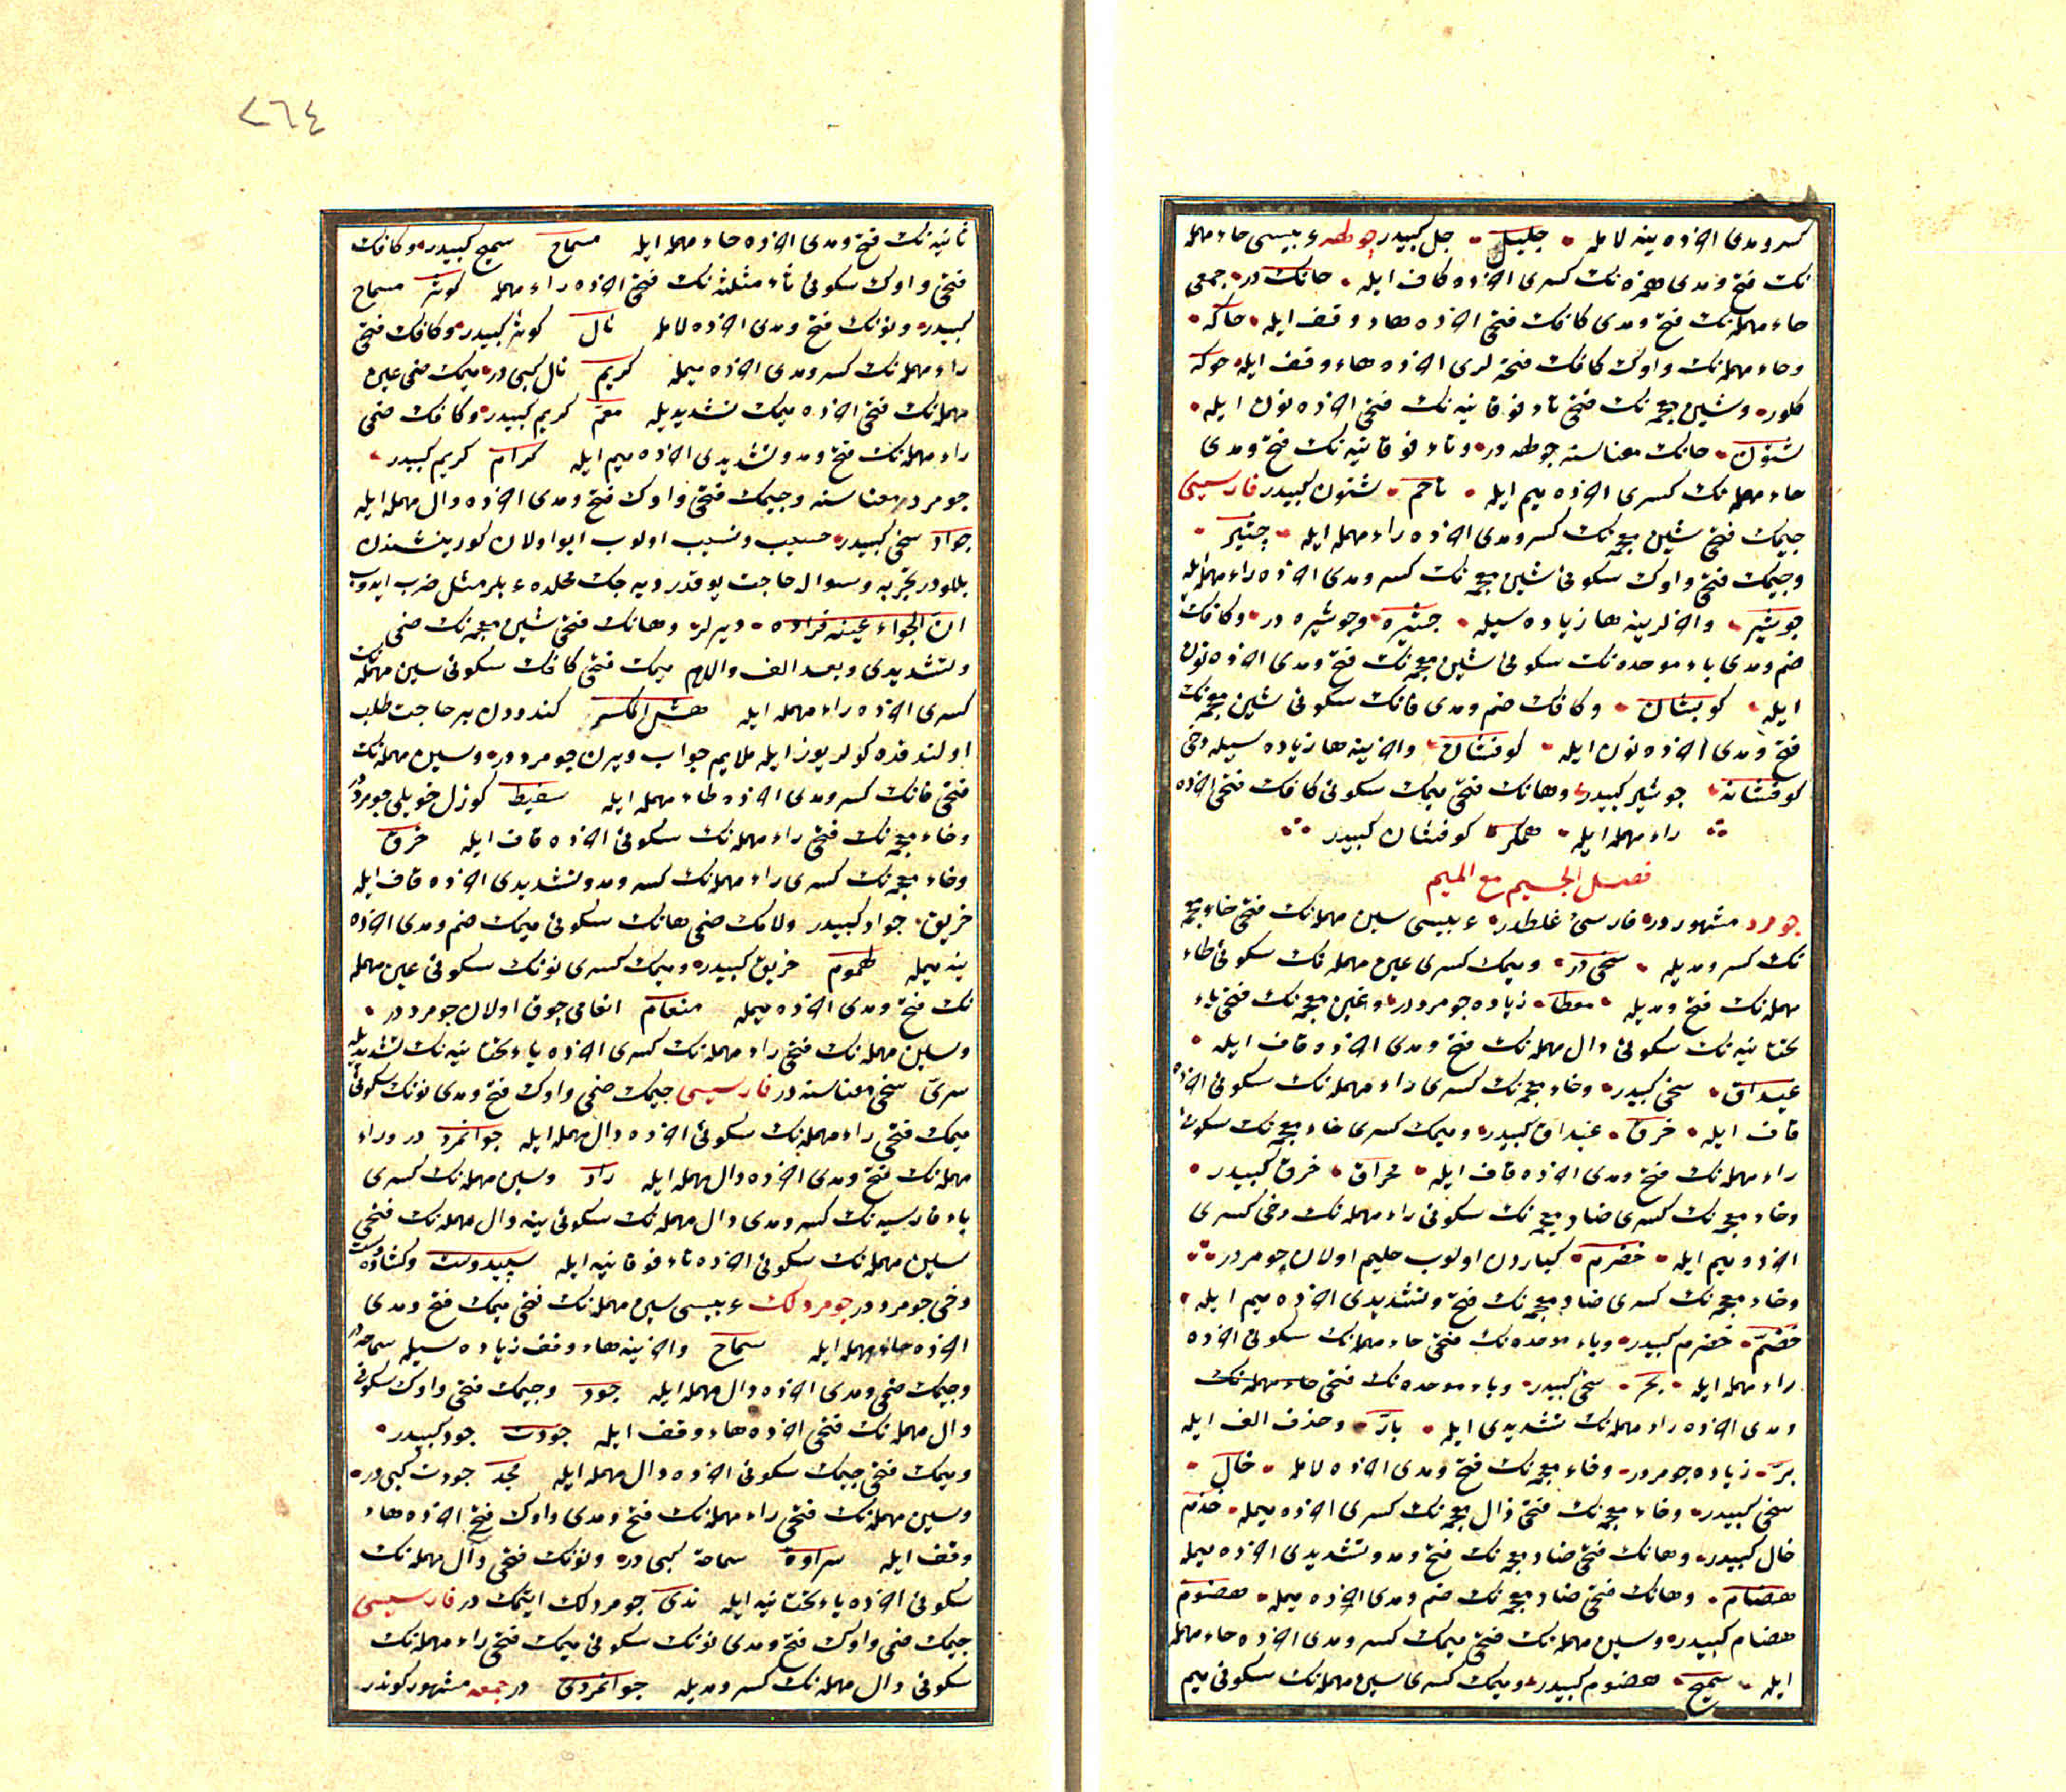 كسر و مدى اخرده ينه لامله • جليل • جل كبيدر چوطه عربيسى حاء مهمله
نك فتح و مدى همزه نك كسرى اخرده كاف ايله • حائك در • جمعى
حاء مهمله نك فتح و مدى كافك فتحى اخرده هاء وقف ايله • حاكه •
و حاء مهمله نك واوك كافك فتحه لرى اخرده هاء وقف ايله حوكه
كلور • وشين معجمه نك فتحى تاء فوقانيه نك فتحى اخرده نون ايله •
شتون • حائك معناسنه جوطه در • وتاء فوقانيه نك فتح و مدى
حاء مهمله نك كسرى اخرده ميم ايله • تاحم • شتون كبيدر فارسيسى
جيمك فتحى شين معجمه نك كسر و مدى اخرده راء مهمله ايله • جشير •
وجيمك فتحى واوك سكونى شين معجمه نك كسر و مدى اخرده راء مهمله ايله
جوشير • واخرلرينه ها زياده سيله • جشيره • وجوشيره در • وكافك
ضم و مدى باء موحده نك سكونى شين معجمه نك فتح و مدى اخرده نون
ايله • كوبشان • وكافك ضم و مدى فانك سكونى شين معجمه نك
فتح و مدى اخرده نون ايله • كوفشان • واخرينه ها زياده سيله دخى
كوفشانه • جوشير كبيدر • وهانك فتحى ميمك سكونى كافك فتحى اخرده
راء مهمله ايله • همكر • كوفشان كبيدر
فصل الجيم مع الميم
جومرد مشهوردر • فارسئ غلطدر • عربيسى سين مهمله نك فتحى خاء معجمه
نك كسر و مديله • سخى در • وميمك كسرى عين مهمله نك سكونى طاء
مهمله نك فتح و مديله • معطا • زياده جومرددر • وغين معجمه نك فتحى ياء
تحتانيه نك سكونى دال مهمله نك فتح و مدى اخرده قاف ايله •
غيداق • سخى كبيدر • وخاء معجمه نك كسرى راء مهمله نك سكونى اخرده
قاف ايله • خرق • غيداق كبيدر • وميمك كسرى خاء معجمه نك سكونى
راء مهمله نك فتح و مدى اخرده قاف ايله • مخراق • خرق كبيدر •
وخاء معجمه نك كسرى ضاد معجمه نك سكونى راء مهمله نك دخى كسرى
اخرده ميم ايله • خضرم • كباردن اولوب حليم اولان جومرددر
وخاء معجمه نك كسرى ضاد معجمه نك فتح وتشديدى اخرده ميم ايله •
خضمّ • خضرم كبيدر • وباء موحده نك فتحى حاء مهمله نك سكونى اخرده
راء مهمله ايله • بحر • سخى كبيدر • وباء موحده نك فتحى حاء مهمله نك
و مدى اخرده راء مهمله نك تشديدى ايله • بارّ • وحذف الف ايله
برّ • زياده جومرددر • وخاء معجمه نك فتح و مدى اخرده لامله • خال •
سخى كبيدر • وخاء معجمه نك فتحى ذال معجمه نك كسرى اخرده ميمله • خذم
خال كبيدر • وهانك فتحى ضاد معجمه نك فتح و مد وتشديدى اخرده ميمله
هضام • وهانك فتحى ضاد معجمه نك ضم و مدى اخرده ميمله • هضوم
هضام كبيدر • وسين مهمله نك فتحى ميمك كسر و مدى اخرده حاء مهمله
ايله • سميح • هضوم كبيدر • وميمك كسرى سين مهمله نك سكونى ميم
٢٦٤
ثانيه نك فتح و مدى اخرده حاء مهمله ايله مسماح سميح كبيدر • وكافك
فتحى واوك سكونى ثاء مثلثه نك فتحى اخرده راء مهمله كوثر مسماح
كبيدر • ونونك فتح و مدى اخرده لامله نال كوثر كبيدر • وكافك فتحى
راء مهمله نك كسر و مدى اخرده ميمله كريم نال كبى در • ميمك ضمى عين
مهمله نك فتحى اخرده ميمك تشديديله معمّ كريم كبيدر • وكافك ضمى
راء مهمله نك فتح و مد وتشديدى اخرده ميم ايله كرام كريم كبيدر •
جومرد معناسنه وجيمك فتحى واوك فتح و مدى اخرده دال مهمله ايله
جواد سخى كبيدر • حسيب ونسيب اولوب ايو اولان كورينشندن
بللودر تجربه وسوال حاجت يوقدر ديه جك محلده عربلر مثل ضرب ايدوب
ان الجواد عينه فراده • ديرلر • وهانك فتحى شين معجمه نك ضمى
وتشديدى وبعد الف واللام ميمك فتحى كافك سكونى سين مهمله نك
كسرى اخرده راء مهمله ايله هش المكسر كندودن بر حاجت طلب
اولندقده كولر يوز ايله ملايم جواب ويرن جومرددر • وسين مهمله نك
فتحى فانك كسر و مدى اخرده طاء مهمله ايله سفيط كوزل خويلى جومرددر
وخاء معجمه نك فتحى راء مهمله نك سكونى اخرده قاف ايله خرق
وخاء معجمه نك كسرى راء مهمله نك كسر و مد وتشديدى اخرده قاف ايله
خريق • جواد كبيدر ولامك ضمى هانك سكونى ميمك ضم و مدى اخرده
ينه ميمله لهموم خريق كبيدر • وميمك كسرى نونك سكونى عين مهمله
نك فتح و مدى اخرده ميمله منعام انعامى چوق اولان جومرددر •
وسين مهمله نك فتحى راء مهمله نك كسرى اخرده ياء تحتانيه نك تشديديله
سرىّ سخى معناسنه در فارسيسى جيمك ضمى واوك فتح و مدى نونك سكونى
ميمك فتحى راء مهمله نك سكونى اخرده دال مهمله ايله جوانمرد در وراء
مهمله نك فتح و مدى اخرده دال مهمله ايله راد وسين مهمله نك كسرى
باء فارسيه نك كسر و مدى دال مهمله نك سكونى ينه دال مهمله نك فتحى
سين مهمله نك سكونى اخرده تاء فوقانيه ايله سپيددست وكشاده دست
دخى جومرددر جومردلك عربيسى سين مهمله نك فتحى ميمك فتح و مدى
اخرده حاء مهمله ايله سماح واخرينه هاء وقف زياده سيله سماحه در
وجيمك ضمى و مدى اخرده دال مهمله ايله جود وجيمك فتحى واوك سكونى
دال مهمله نك فتحى اخرده هاء وقف ايله جودت جود كبيدر •
وميمك فتحى جيمك سكونى اخرده دال مهمله ايله مجد جودت كبى در •
وسين مهمله نك فتحى راء مهمله نك فتح و مدى واوك فتح اخرده هاء
وقف ايله سراوة سماحة كبى در • ونونك فتحى دال مهمله نك
سكونى اخرده ياء تحتانيه ايله ندى جومردلك ايتمك در فارسيسى
جيمك ضمى واوك فتح و مدى نونك سكونى ميمك فتحى راء مهمله نك
سكونى دال مهمله نك كسر و مديله جوانمردى در جمعه مشهور كوندر